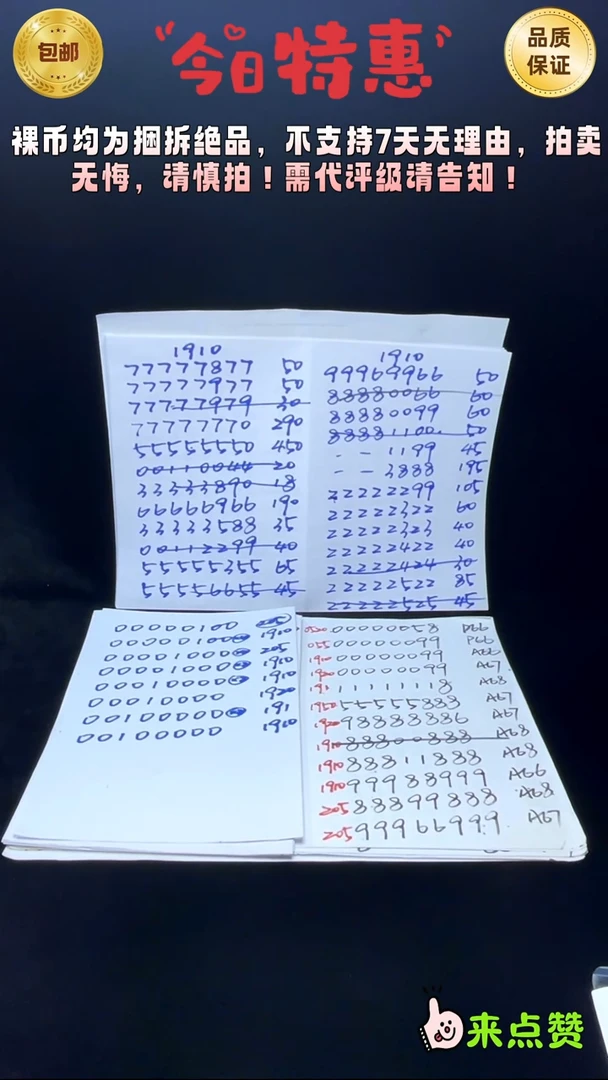 包邮
今日特惠
品质
保证
裸币均为捆拆绝品，不支持7天无理由，拍卖
无悔，请慎拍！需代评级请告知！
1910
77777877 50
77777977 50
77777979 30
77777770 290
55555550 450
00110044 20
33333890 18
66666966 190
33333588 35
00112299 40
55555355 65
55556655 45
1910
99969966 50
88880066 60
88880099 60
88881100 50
- - 1199 45
- - 3888 195
22222299 105
22222322 60
22222323 40
22222422 40
22222424 30
22222522 85
22222525 45
00000100 205
00000100 1910
00001000 205
00001000 1910
00010000 1910
00010000 1920
00100000 191
00100000 1910
0520 00000058 P66
055 00000099 P66
1910 00000099 A66
1920 00000099 A67
191 11111118 A68
1950 55555888 A67
1920 98888886 A67
1910 88800888 A68
1910 88811888 A68
1910 99988999 A66
205 88899888 A68
205 99966999 A67
来点赞